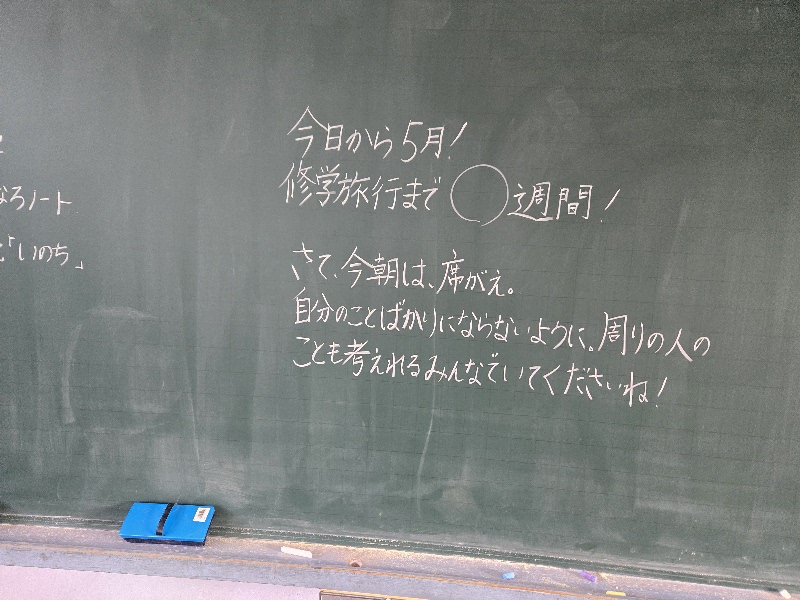 今日から5月!
修学旅行まで◯週間!
さて、今朝は、席がえ。
自分のことばかりにならないように。周りの人の
ことも考えれるみんなでいてくださいね!
なろノート
「いのち」